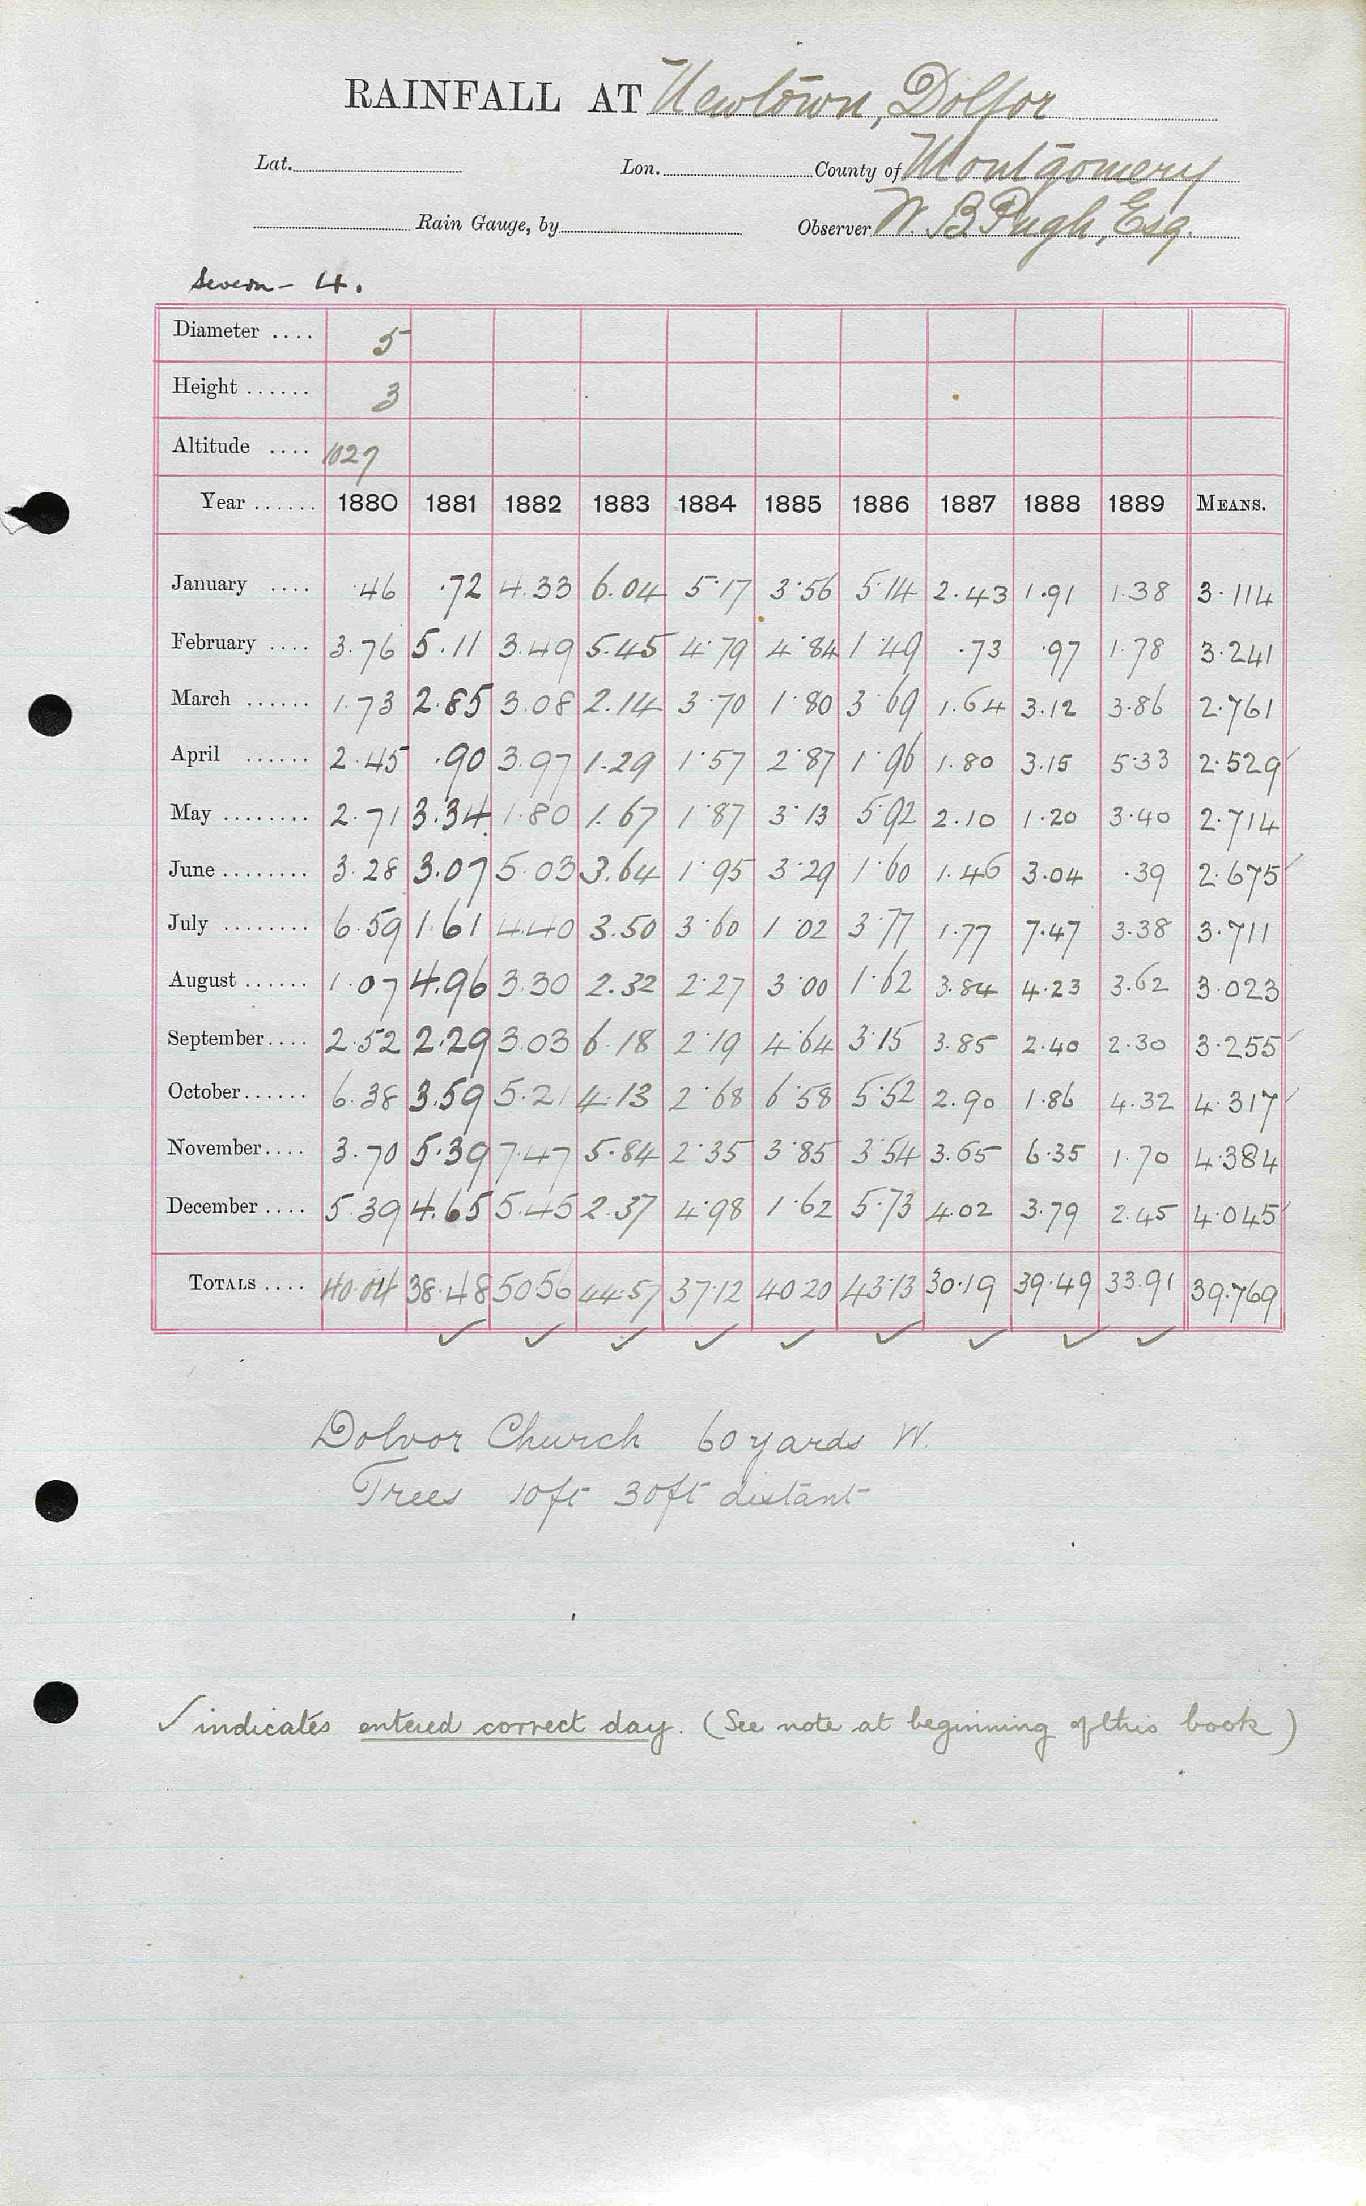 RAINFALL AT Newtown, Dolfor
Lat. Lon. County of Montgomery
Rain Gauge, by Observer W. B. Pugh, Esq.
Severn - 4.
Diameter .... 5
Height ...... 3
Altitude .... 1027
Year ...... 1880 1881 1882 1883 1884 1885 1886 1887 1888 1889 MEANS.
January .... .46 .72 4.33 6.04 5.17 3.56 5.14 2.43 1.91 1.38 3.114
February .... 3.76 5.11 3.49 5.45 4.79 4.84 1.49 .73 .97 1.78 3.241
March ...... 1.73 2.85 3.08 2.14 3.70 1.80 3.69 1.64 3.12 3.86 2.761
April ...... 2.45 .90 3.97 1.29 1.57 2.87 1.96 1.80 3.15 5.33 2.529
May ........ 2.71 3.34 1.80 1.67 1.87 3.13 5.92 2.10 1.20 3.40 2.714
June ........ 3.28 3.07 5.03 3.64 1.95 3.29 1.60 1.46 3.04 .39 2.675
July ........ 6.59 1.61 4.40 3.50 3.60 1.02 3.77 1.77 7.47 3.38 3.711
August ...... 1.07 4.96 3.30 2.32 2.27 3.00 1.62 3.84 4.23 3.62 3.023
September .... 2.52 2.29 3.03 6.18 2.19 4.64 3.15 3.85 2.40 2.30 3.255
October ...... 6.38 3.59 5.21 4.13 2.68 6.58 5.52 2.90 1.86 4.32 4.317
November .... 3.70 5.39 7.47 5.84 2.35 3.85 3.54 3.65 6.35 1.70 4.384
December .... 5.39 4.65 5.45 2.37 4.98 1.62 5.73 4.02 3.79 2.45 4.045
TOTALS .... 40.04 38.48 50 56 44.57 37.12 40 20 43.13 30.19 39.49 33.91 39.769
✓ ✓ ✓ ✓ ✓ ✓ ✓ ✓ ✓
Dolvor Church 60 yards W.
Trees 10ft 30ft distant
✓ indicates entered correct day. (See note at beginning of this book)